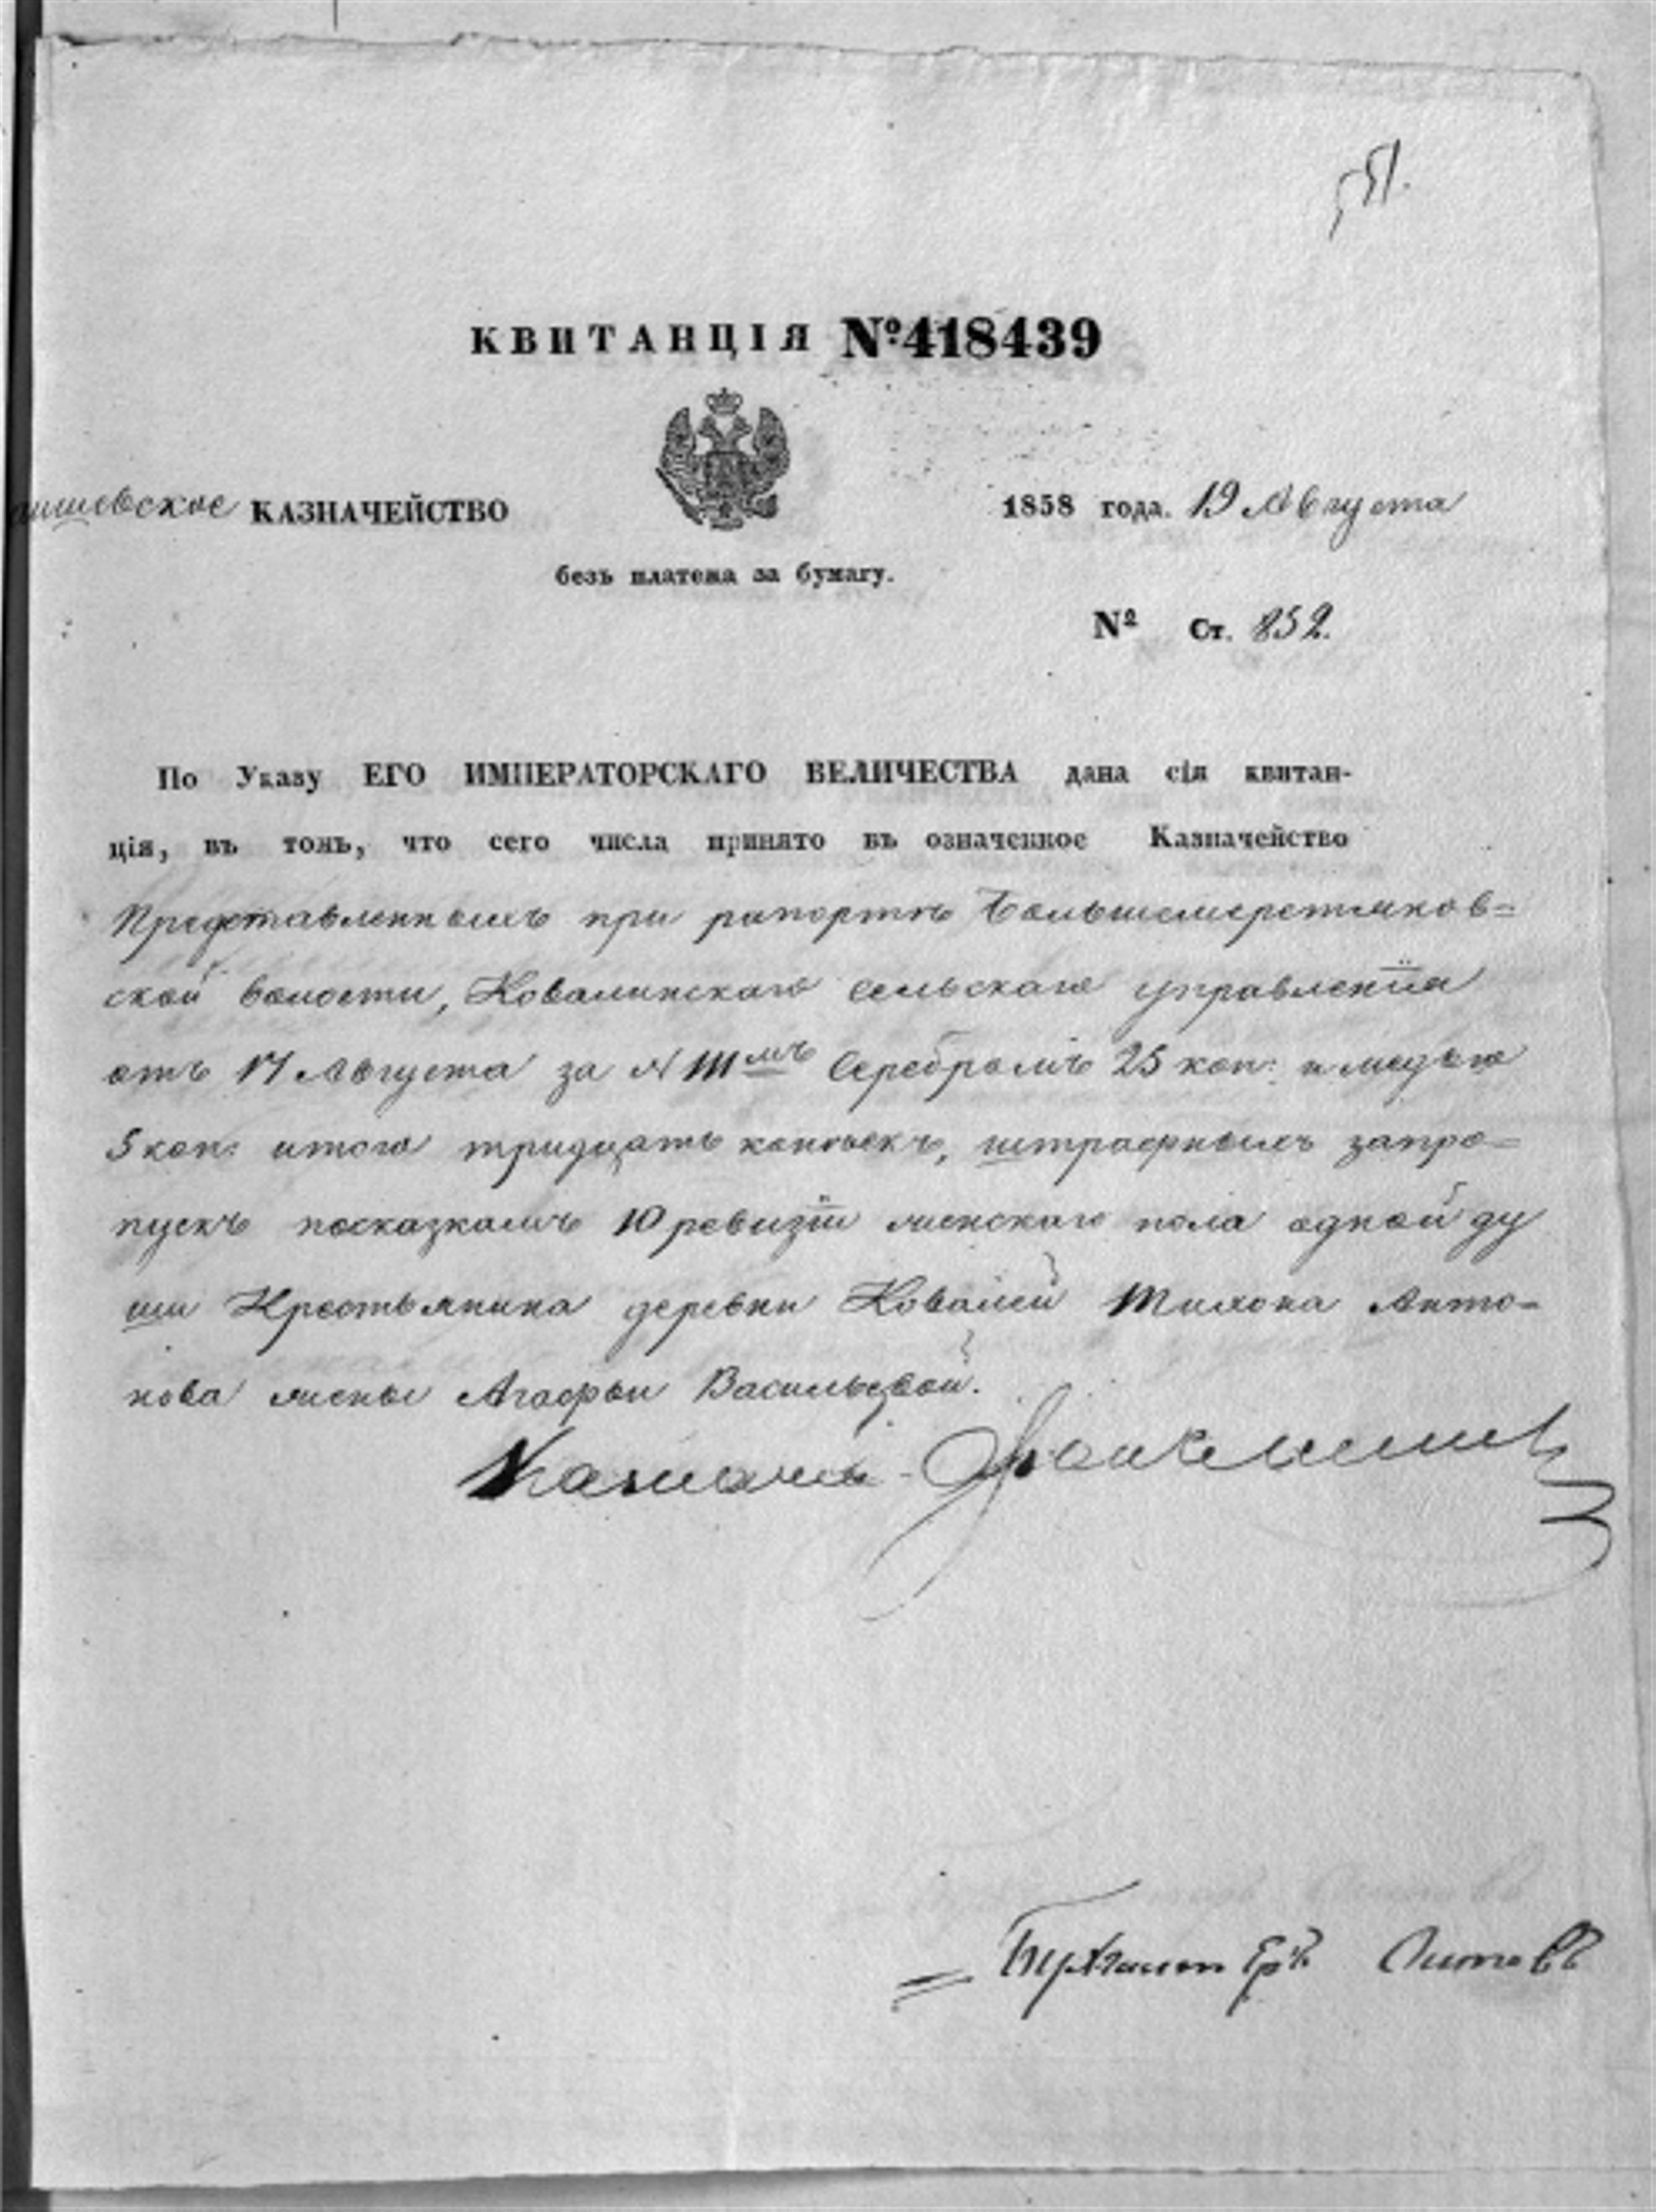 551.
КВИТАНЦІЯ №418439
аишевское КАЗНАЧЕЙСТВО
1858 года. 19 Августа
безъ платежа за бумагу.
№ Ст. 852.
По Указу ЕГО ИМПЕРАТОРСКАГО ВЕЛИЧЕСТВА дана сія квитан-
ція, въ томъ, что сего числа принято въ означенное Казначейство
Представленныхъ при рапортѣ Большемеретяков=
ской волости, Ковалинскаго сельскаго управленія
отъ 17 Августа за № 111мъ Серебромъ 25 коп: и медью
5 коп: итого тридцать копѣекъ, штрафныхъ запро=
пускъ посказкамъ 10 ревизіи женскаго пола одной ду
ши Крестьянина деревни Ковалей Тихона Анто-
нова жены Агафьи Васильевой.
Казначей
Бухгалтеръ